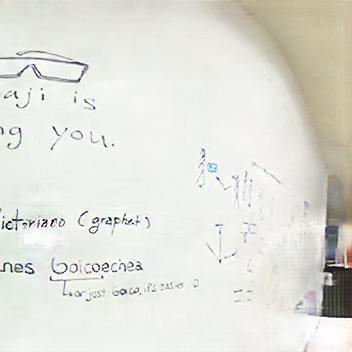 aji is
ng you.
ictoriano (graphet)
nes Goicoechea
or just Goico, it's easier :D